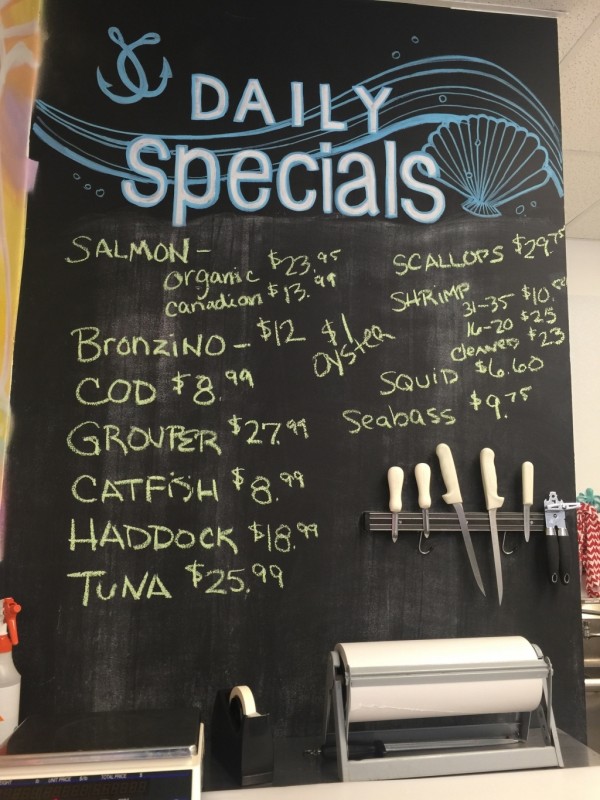 DAILY
Specials
SALMON -
organic $23.95
canadian $13.99
Bronzino - $12
$1 oyster
COD $8.99
GROUPER $27.99
CATFISH $8.99
HADDOCK $18.99
TUNA $25.99
SCALLOPS $29.75
SHRIMP
31-35 $10.50
16-20 $25
cleaned $23
SQUID $6.60
Seabass $9.75
UNIT PRICE
TOTAL PRICE